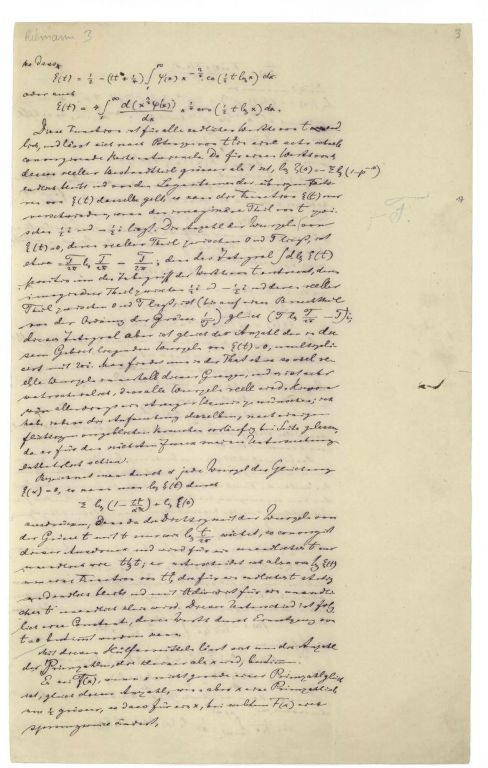 Riemann 3
3
so dass
ξ(t) = ½ − (tt + ¼) ∫₁^∞ ψ(x) x^(−¾) cos (½ t lg x) dx
oder auch
ξ(t) = 4 ∫₁^∞ d(x^(3/2) ψ'(x))/dx x^(−¼) cos (½ t lg x) dx.
Diese Function ist für alle endlichen Werthe von t end
lich, und lässt sich nach Potenzen von tt in eine sehr schnell
convergirende Reihe entwickeln. Da für einen Werth von s,
dessen reeller Bestandtheil grösser als 1 ist, lg ζ(s) = −Σ lg (1−p^(−s))
endlich bleibt und von den Logarithmen der übrigen Facto-
ren von ξ(t) dasselbe gilt, so kann die Function ξ(t) nur
verschwinden, wenn der imaginäre Theil von t zwi-
schen ½ i und −½ i liegt. Die Anzahl der Wurzeln von
ξ(t)=0, deren reeller Theil zwischen 0 und T liegt, ist
etwa = T/2π lg T/2π − T/2π; denn das Integral ∫ d lg ξ(t)
positiv um den Inbegriff der Werthe von t erstreckt, deren
imaginärer Theil zwischen ½ i und −½ i und deren reeller
Theil zwischen 0 und T liegt, ist (bis auf einen Bruchtheil
von der Ordnung der Grösse 1/T) gleich (T lg T/2π − T) i;
dieses Integral aber ist gleich der Anzahl der in die
sem Gebiet liegenden Wurzeln von ξ(t)=0, multipli-
cirt mit 2πi. Man findet nun in der That etwa so viel re
elle Wurzeln innerhalb dieser Grenzen, und es ist sehr
wahrscheinlich, dass alle Wurzeln reell sind. Hiervon
wäre allerdings ein strenger Beweis zu wünschen; ich
habe indess die Aufsuchung desselben nach einigen
flüchtigen vergeblichen Versuchen vorläufig bei Seite gelassen,
da er für den nächsten Zweck meiner Untersuchung
entbehrlich schien.
Bezeichnet man durch α jede Wurzel der Gleichung
ξ(α)=0, so kann man lg ξ(t) durch
Σ lg (1 − tt/αα) + lg ξ(0)
ausdrücken; denn da die Dichtigkeit der Wurzeln von
der Grösse t mit t nur wie lg t/2π wächst, so convergirt
dieser Ausdruck und wird für ein unendliches t nur
unendlich wie t lg t; er unterscheidet sich also von lg ξ(t)
um eine Function von tt, die für ein endliches t stetig
und endlich bleibt und mit tt dividirt für ein unendli
ches t unendlich klein wird. Dieser Unterschied ist folg
lich eine Constante, deren Werth durch Einsetzung von
t=0 bestimmt werden kann.
Mit diesen Hülfsmitteln lässt sich nun die Anzahl
der Primzahlen, die kleiner als x sind, bestimmen.
Es sei F(x), wenn x nicht gerade einer Primzahl gleich
ist, gleich dieser Anzahl, wenn aber x eine Primzahl ist
um ½ grösser, so dass für ein x, bei welchem F(x) sich
sprungweise ändert,